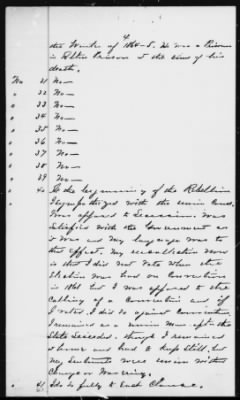 the Winter of 1864-5. He was a Prisoner
in Libby Prison at the time of his
death.
No 31 No—
" 32 No—
" 33 No—
" 34 No—
" 35 No—
" 36 No—
" 37 No—
" 38 No—
" 39 No—
" 40 At the beginning of the Rebellion
I sympathized with the union cause.
Was opposed to Secession. Was
Satisfied with the Government as
it was and my language was to
that effect. My recollection now
is that I did not vote when the
Election was had on Convention
in 1861 but I was opposed to the
Calling of a Convention and if
I voted, I did so against Convention.
I remained as a union man after the
State Seceded. though I remained
at home and had to keep Still, but
my Sentiments were union without
Change or Wavering.
" 41 I do so fully to Each Clause.